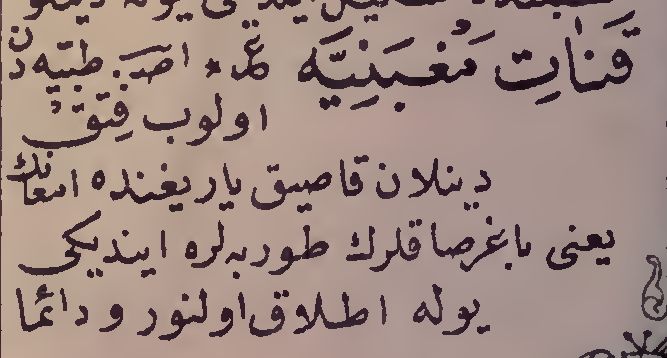 قَنَاتِ مَغْبَنِيَّه * اص. طبيه دن
اولوب فِتَق
دينلان قاصيق ياريغنده امعانك
يعنى باغرصاقلرك طوربه لره اينديكى
يوله اطلاق اولنور و دائما